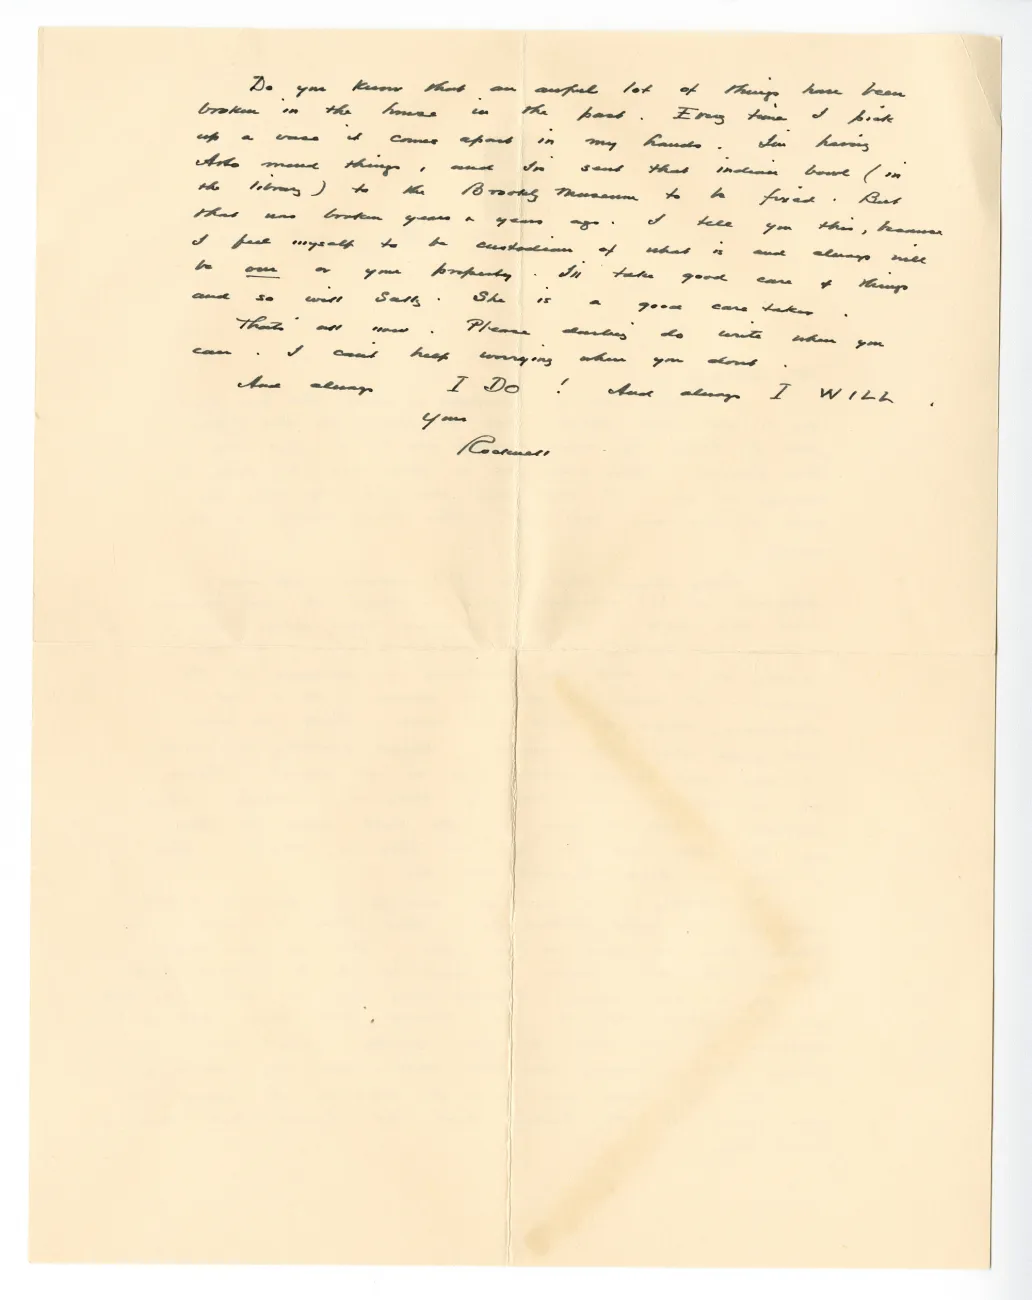 Do you know that an awful lot of things have been
broken in the house in the past. Every time I pick
up a vase it comes apart in my hands. I'm having
Arto mend things, and I've sent that indian bowl (in
the library) to the Brooklyn Museum to be fixed. But
that was broken years & years ago. I tell you this, because
I feel myself to be custodian of what is and always will
be our or your property. I'll take good care of things
and so will Sally. She is a good care taker.
That's all now. Please darling do write when you
can. I can't help worrying when you don't.
And always I DO! And always I WILL.
Your
Rockwell